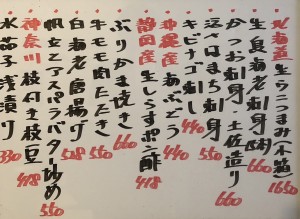 北海道 生うにつまみ(木箱) 1650
生鳥海老刺身 例
かつお刺身・土佐造り 660
活〆はまち刺身 550
キビナゴ刺し 440
沖縄産 海ぶどう 440
静岡産 生しらすポン酢 418
ぶりかま焼き 660
牛モモ肉たたき 550
白海老唐揚げ 528
帆立とアスパラバター炒め 550
神奈川 枝付き枝豆 418
水茄子浅漬け 330